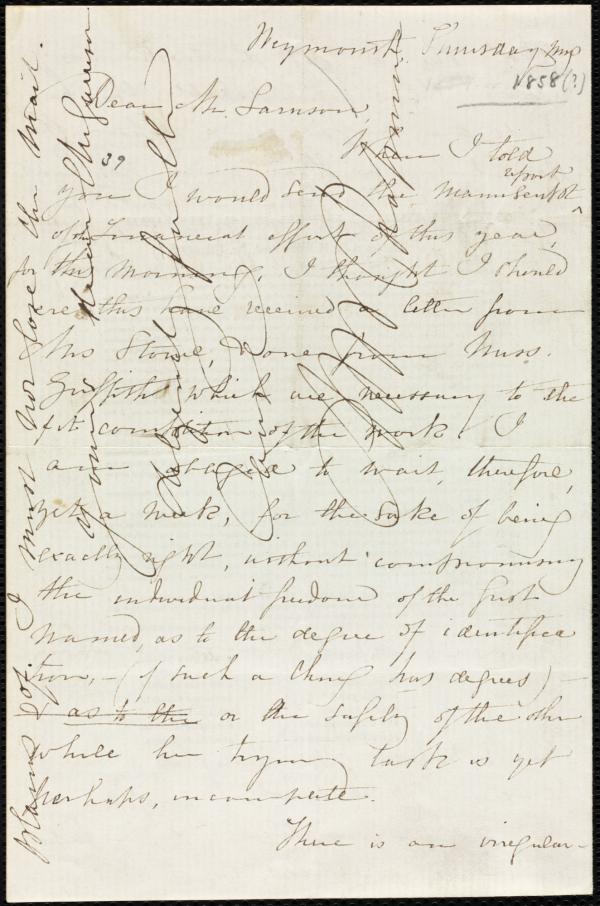 Weymouth, Thursday
1858(?)
Dear Mr. Samson,
39
When I told
you I would send the manuscript
report
of financial effort of this year,
for this morning, I thought I should
ere this have received a letter from
Mrs Stowe, & one from Miss.
Griffith which are necessary to the
fit completion of the work. I
am obliged to wait, therefore,
yet a week, for the sake of being
exactly right, without compromising
the individual freedom of the first
named, as to the degree of identifica
tion, - (if such a thing has degrees) -
as to the or the safety of the other
while her trying task is yet
perhaps, incomplete.
There is an irregular-
I must not lose the mail.